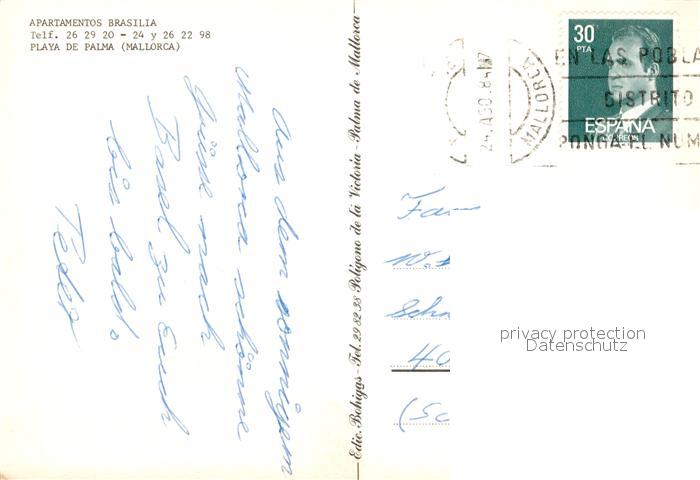 APARTAMENTOS BRASILIA
Telf. 26 29 20 - 24 y 26 22 98
PLAYA DE PALMA (MALLORCA)
Aus dem sonnigen
Mallorca schöne
Grüsse nach
Basel zu Euch
bis bald.
Edic. Bohigas - Tel. 29 82 38 Polígono de la Victoria - Palma de Mallorca
30
PTA
ESPAÑA
CORREOS
MALLORCA
EN LAS POBLA
DISTRITO
PONGA EL NUM
Fa
W.
Sch
40
(Sc
privacy protection
Datenschutz